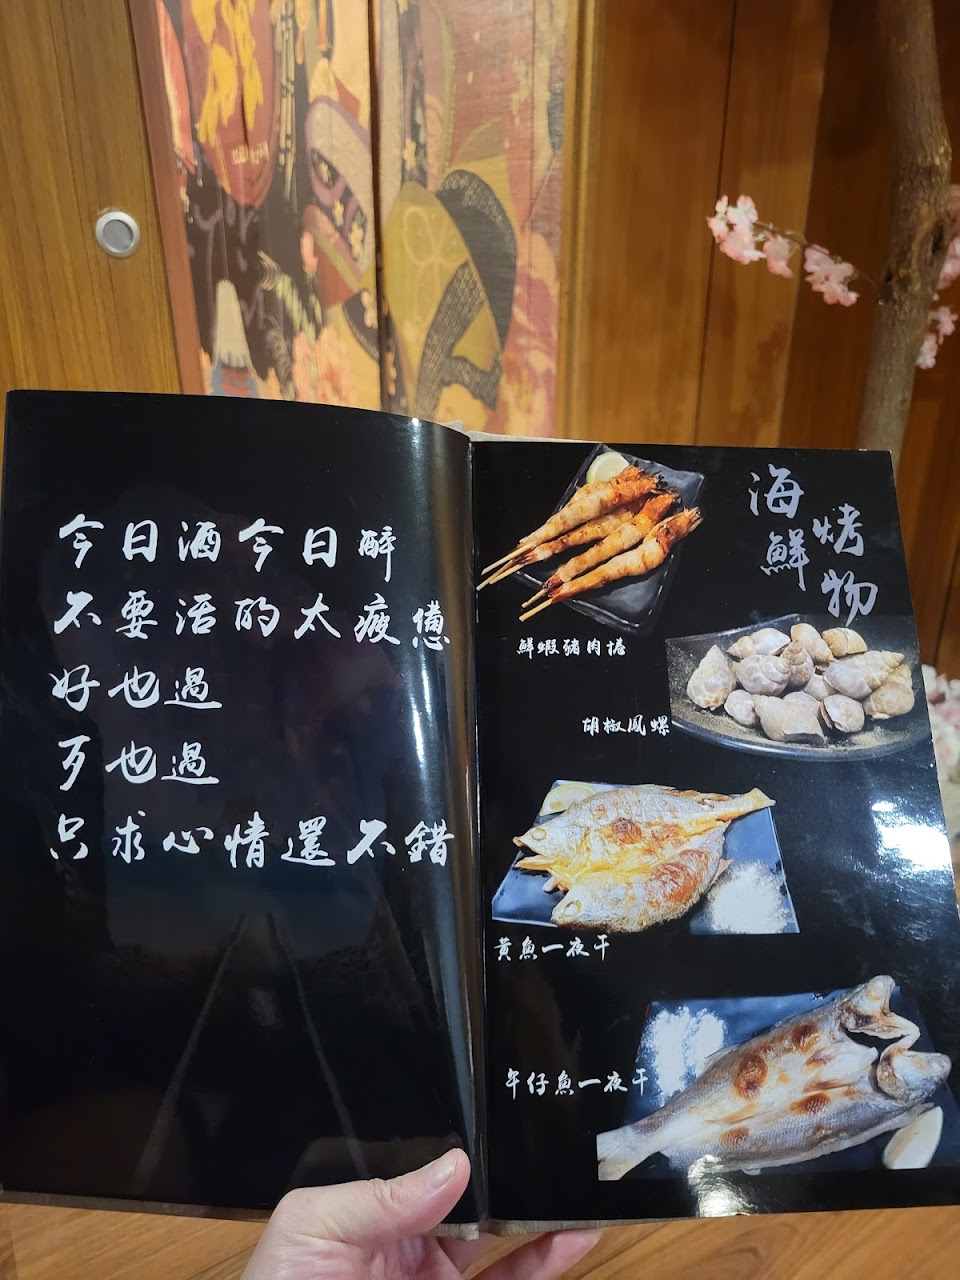 今日酒今日醉
不要活的太疲憊
好也過
歹也過
只求心情還不錯
海鮮
烤物
鮮蝦豬肉捲
胡椒鳳螺
黃魚一夜干
午仔魚一夜干